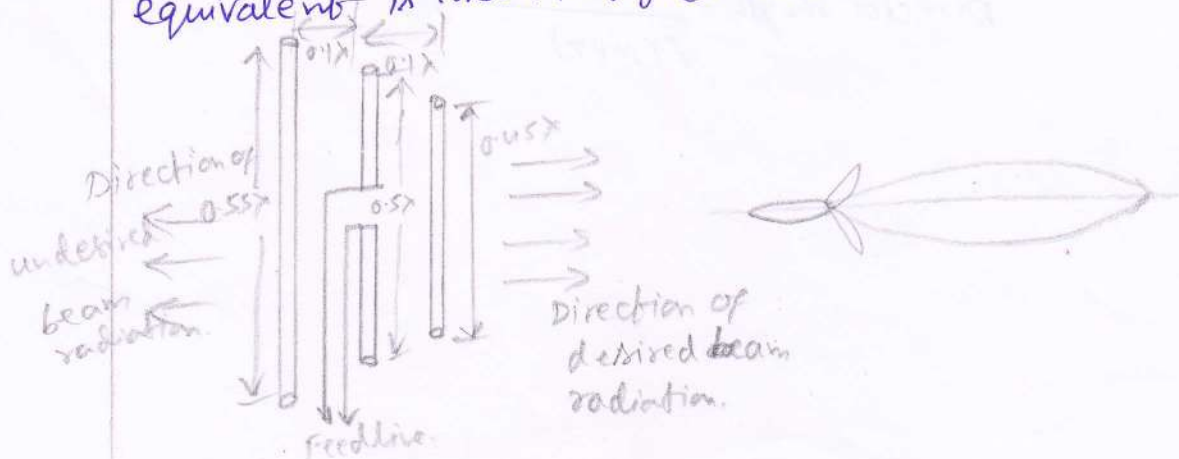 equivalent
0.1λ
0.1λ
0.45λ
Direction of
0.55λ
0.5λ
undesired
beam
radiation.
Direction of
desired beam
radiation.
Feedline.